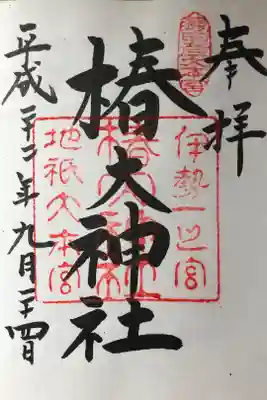 奉拝
椿大神社
伊勢一之宮
地祇大本宮
平成二十二年九月二十四日